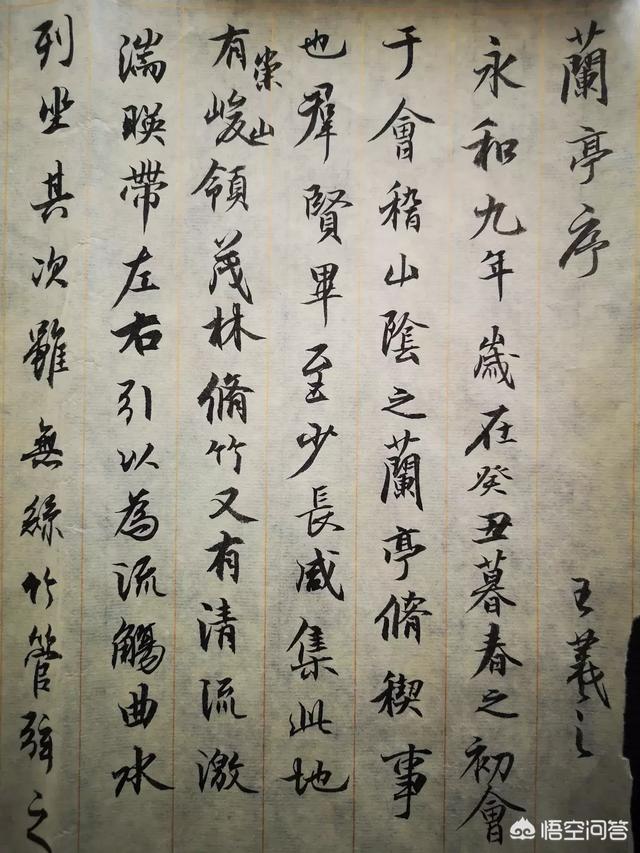 蘭亭序 王羲之
永和九年歲在癸丑暮春之初會
于會稽山陰之蘭亭脩稧事
也羣賢畢至少長咸集此地
有崇山峻領茂林脩竹又有清流激
湍暎帶左右引以為流觴曲水
列坐其次雖無絲竹管弦之
悟空问答